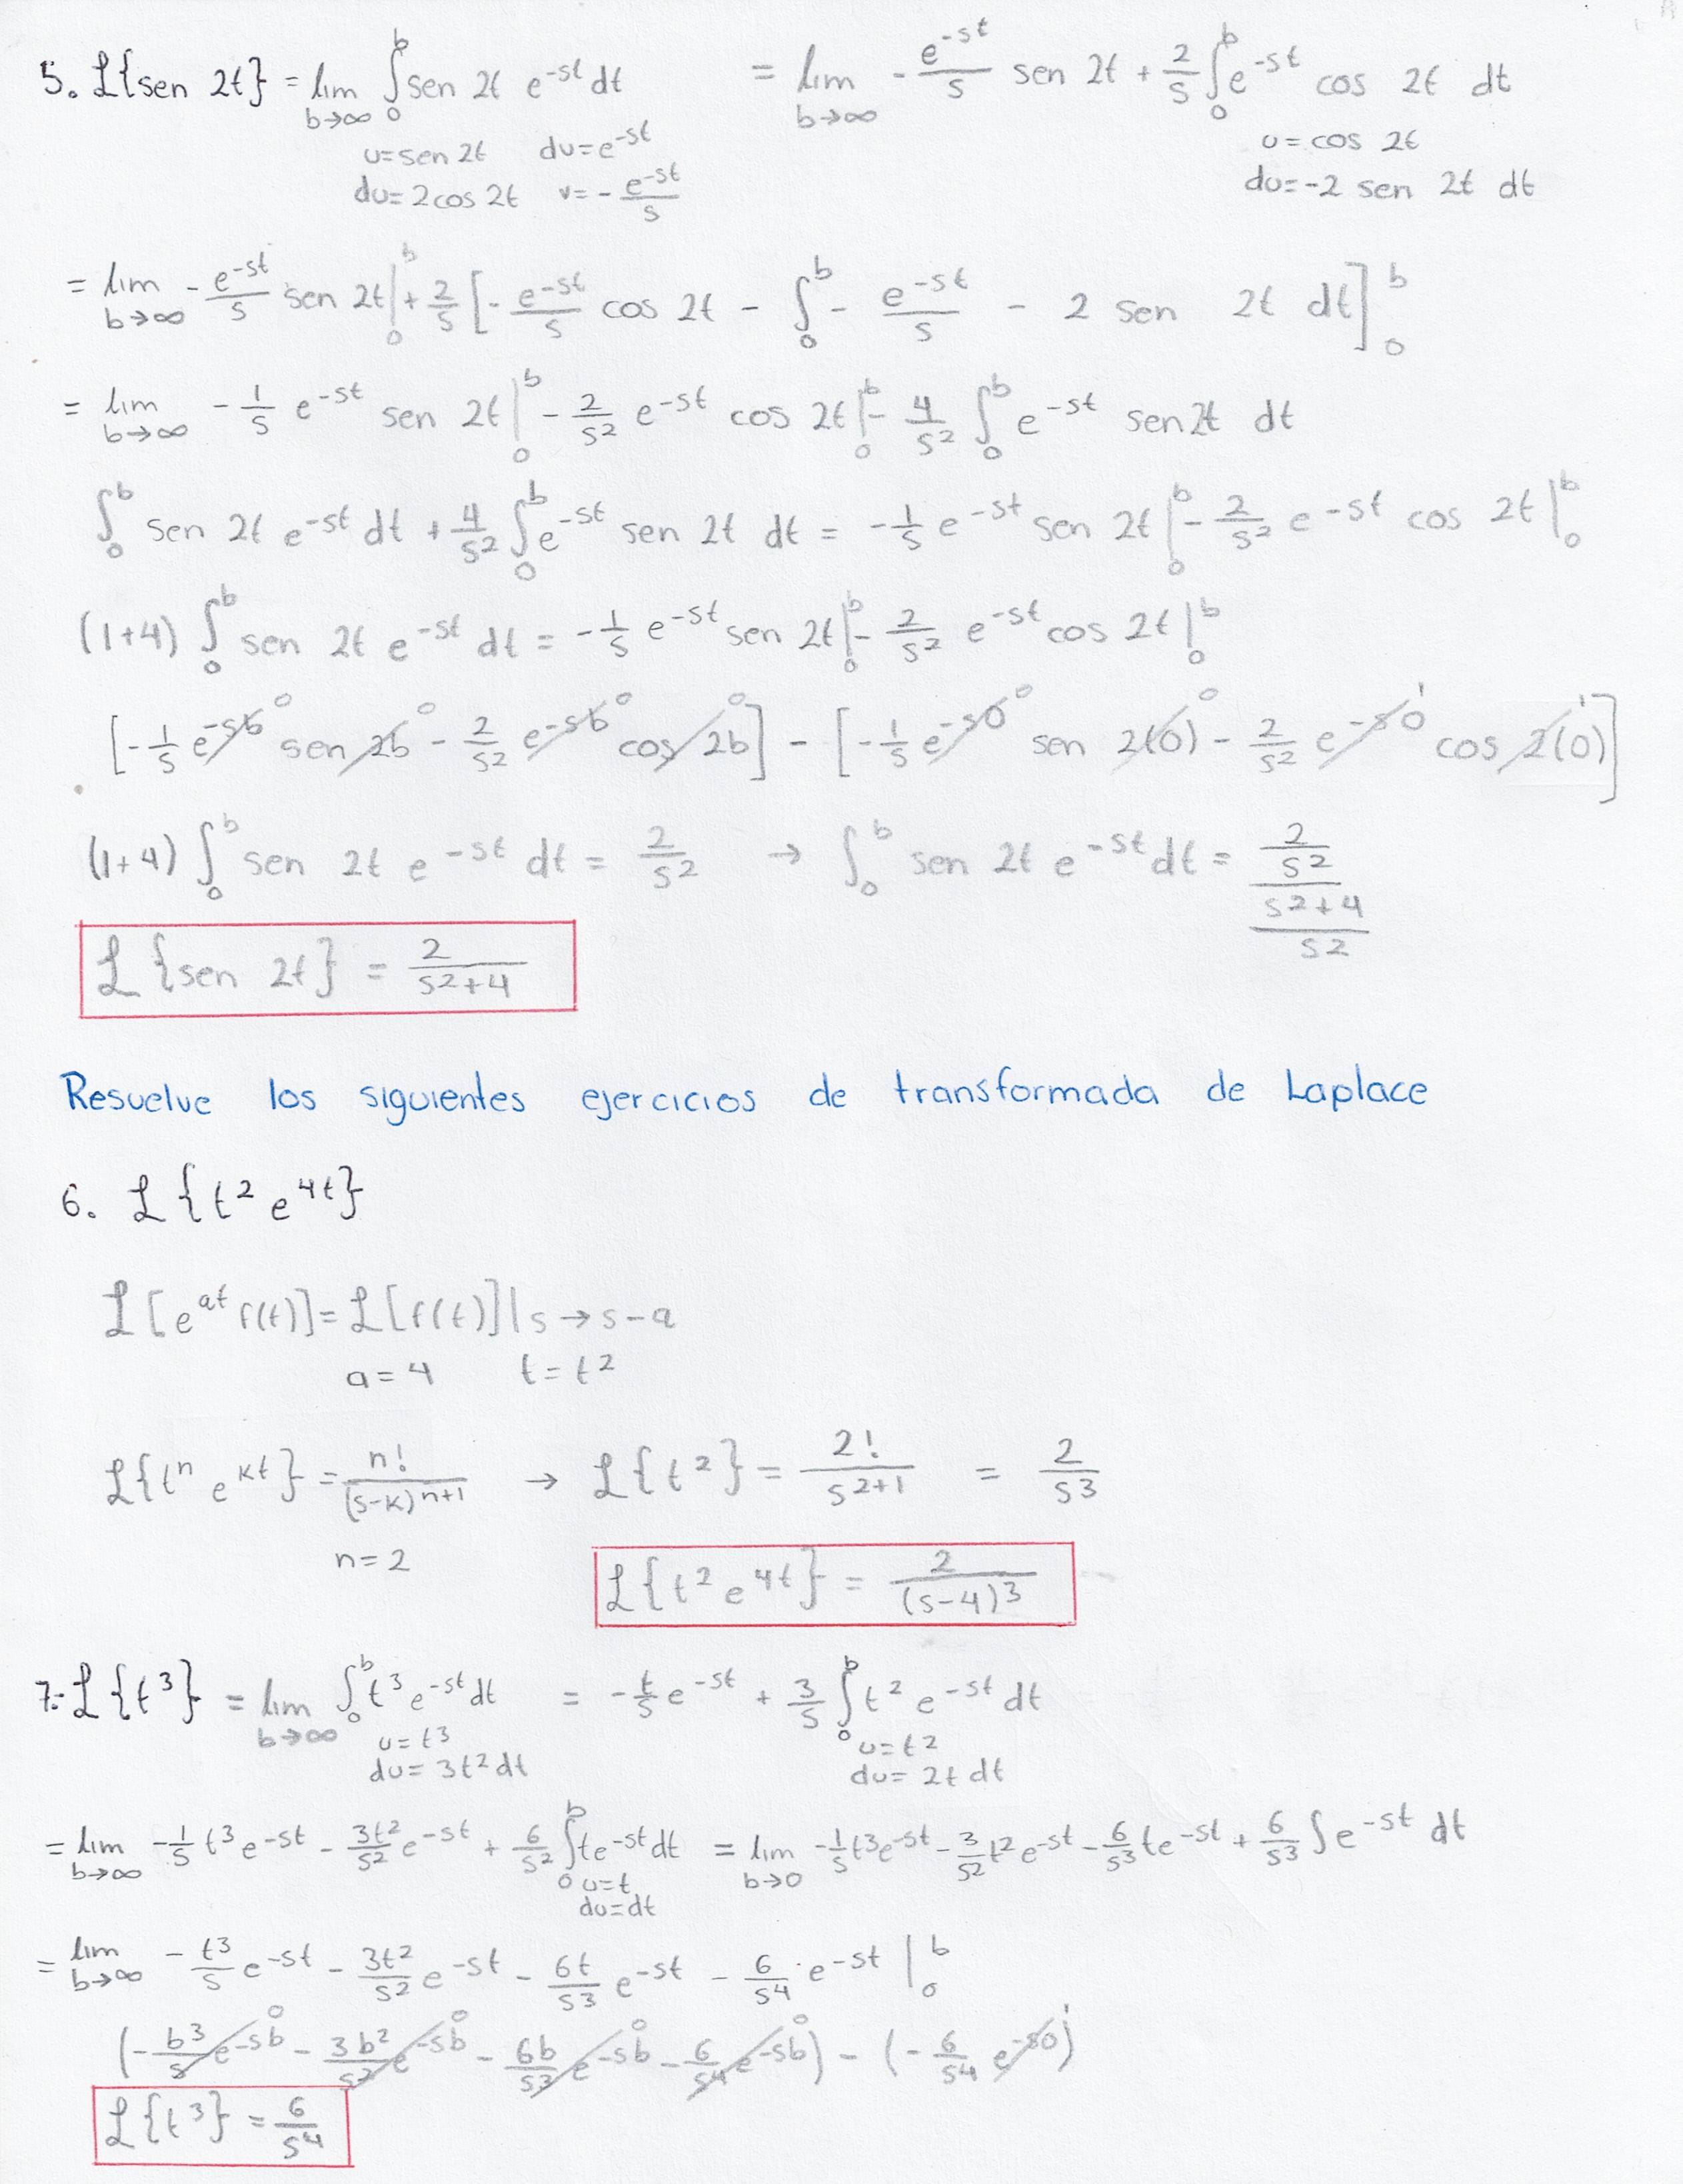 5. ℒ{sen 2t} = lim b→∞ ∫₀ᵇ sen 2t e^-st dt = lim b→∞ - e^-st/s sen 2t + 2/s ∫₀ᵇ e^-st cos 2t dt
u=sen 2t du=e^-st u=cos 2t
du=2cos 2t v=- e^-st/s du=-2 sen 2t dt
= lim b→∞ - e^-st/s sen 2t |₀ᵇ + 2/s [- e^-st/s cos 2t - ∫₀ᵇ - e^-st/s - 2 sen 2t dt]₀ᵇ
= lim b→∞ - 1/s e^-st sen 2t |₀ᵇ - 2/s² e^-st cos 2t |₀ᵇ - 4/s² ∫₀ᵇ e^-st sen 2t dt
∫₀ᵇ sen 2t e^-st dt + 4/s² ∫₀ᵇ e^-st sen 2t dt = - 1/s e^-st sen 2t |₀ᵇ - 2/s² e^-st cos 2t |₀ᵇ
(1+4) ∫₀ᵇ sen 2t e^-st dt = - 1/s e^-st sen 2t |₀ᵇ - 2/s² e^-st cos 2t |₀ᵇ
[- 1/s e^-sb 0 sen 2b 0 - 2/s² e^-sb 0 cos 2b 0] - [- 1/s e^-s0 0 sen 2(0) 0 - 2/s² e^-s0 1 cos 2(0) 1]
(1+4) ∫₀ᵇ sen 2t e^-st dt = 2/s² → ∫₀ᵇ sen 2t e^-st dt = (2/s²)/((s²+4)/s²)
ℒ{sen 2t} = 2/(s²+4)
Resuelve los siguientes ejercicios de transformada de Laplace
6. ℒ{t² e^4t}
ℒ[e^at f(t)] = ℒ[f(t)]|s→s-a
a=4 t=t²
ℒ{tⁿ e^kt} = n!/(s-k)^n+1 → ℒ{t²} = 2!/s^2+1 = 2/s³
n=2 ℒ{t² e^4t} = 2/(s-4)³
7.- ℒ{t³} = lim b→∞ ∫₀ᵇ t³ e^-st dt = - t/s e^-st + 3/s ∫₀ᵇ t² e^-st dt
u=t³ u=t²
du=3t² dt du=2t dt
= lim b→∞ - 1/s t³ e^-st - 3t²/s² e^-st + 6/s² ∫₀ᵇ te^-st dt = lim b→0 - 1/s t³e^-st - 3/s² t²e^-st - 6/s³ te^-st + 6/s³ ∫ e^-st dt
u=t
du=dt
= lim b→∞ - t³/s e^-st - 3t²/s² e^-st - 6t/s³ e^-st - 6/s⁴ · e^-st |₀ᵇ
(- b³/s e^-sb 0 - 3b²/s² e^-sb 0 - 6b/s³ e^-sb 0 - 6/s⁴ e^-sb 0) - (- 6/s⁴ e^-s0 1)
ℒ{t³} = 6/s⁴